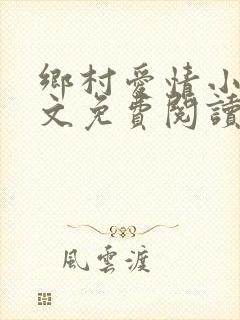 鄉村愛情小
文免費閱讀
風雲渡